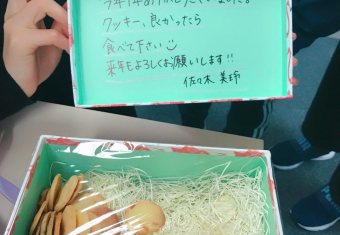 今年1年ありがとうございました。
クッキー、良かったら
食べて下さい
来年もよろしくお願いします!!
佐々木 美玲